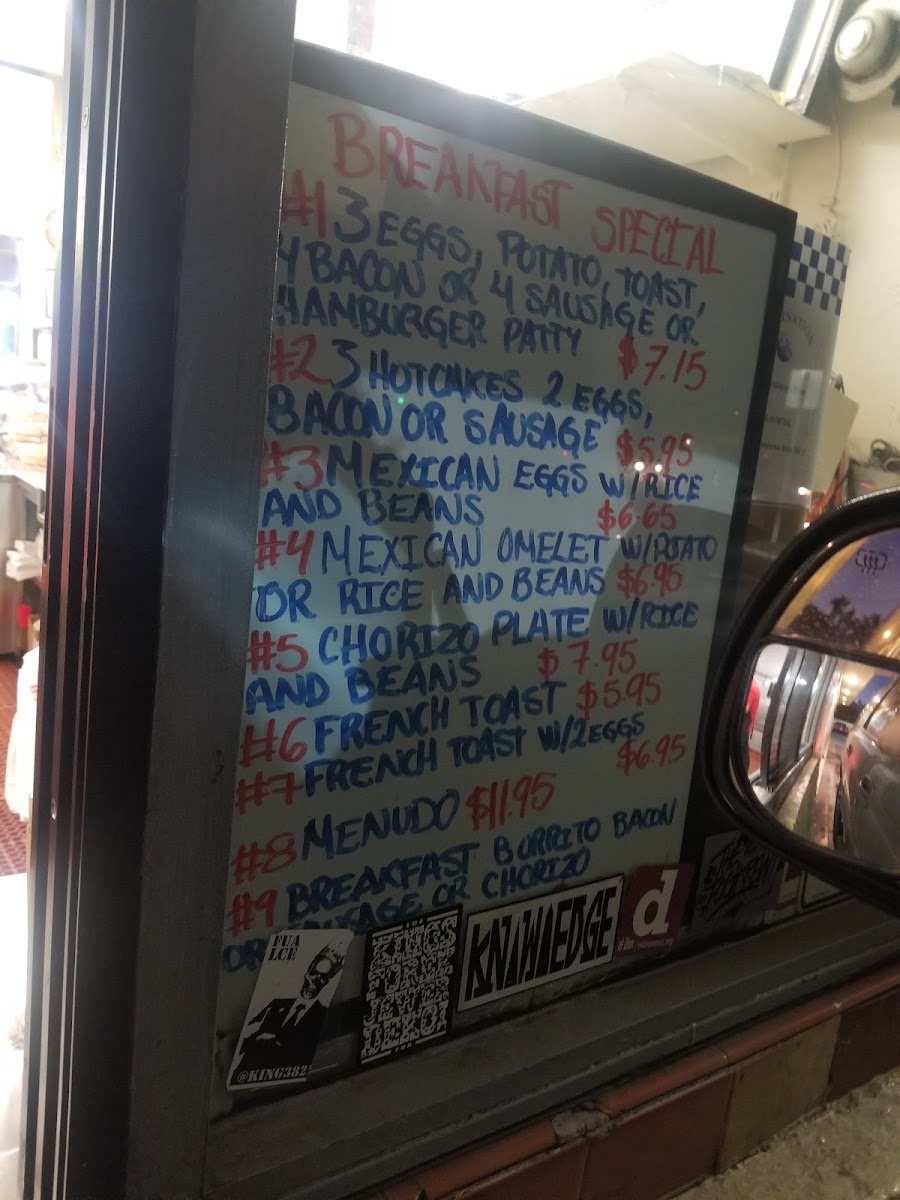 BREAKFAST SPECIAL
#1 3 EGGS, POTATO, TOAST,
4 BACON OR 4 SAUSAGE OR
HAMBURGER PATTY $7.15
#2 3 HOTCAKES 2 EGGS,
BACON OR SAUSAGE $5.95
#3 MEXICAN EGGS W/RICE
AND BEANS $6.65
#4 MEXICAN OMELET W/POTATO
OR RICE AND BEANS $6.95
#5 CHORIZO PLATE W/RICE
AND BEANS $7.95
#6 FRENCH TOAST $5.95
#7 FRENCH TOAST W/2EGGS
$6.95
#8 MENUDO $11.95
#9 BREAKFAST BURRITO BACON
OR SAUSAGE OR CHORIZO
FUA
LCE
@KING382
KNOWLEDGE
d